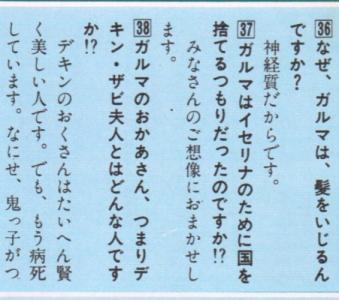 36 なぜ、ガルマは、髪をいじるん
ですか?
神経質だからです。
37 ガルマはイセリナのために国を
捨てるつもりだったのですか!?
みなさんのご想像におまかせし
ます。
38 ガルマのおかあさん、つまりデ
キン・ザビ夫人とはどんな人です
か!?
デキンのおくさんはたいへん賢
く美しい人です。でも、もう病死
しています。なにせ、鬼っ子がつ